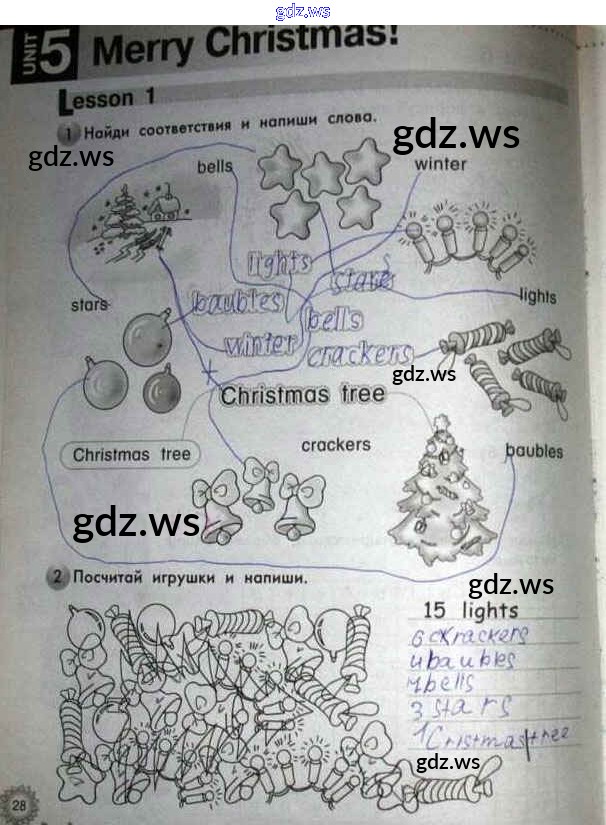 gdz.ws
UNIT 5 Merry Christmas!
Lesson 1
1 Найди соответствия и напиши слова.
gdz.ws
gdz.ws
bells
winter
lights
stars
stars
lights
baubles
bells
winter
crackers
gdz.ws
Christmas tree
Christmas tree
crackers
baubles
gdz.ws
2 Посчитай игрушки и напиши.
gdz.ws
15 lights
6 ckrackers
4 baubles
7 bells
3 stars
1 Cristmas tree
gdz.ws
28